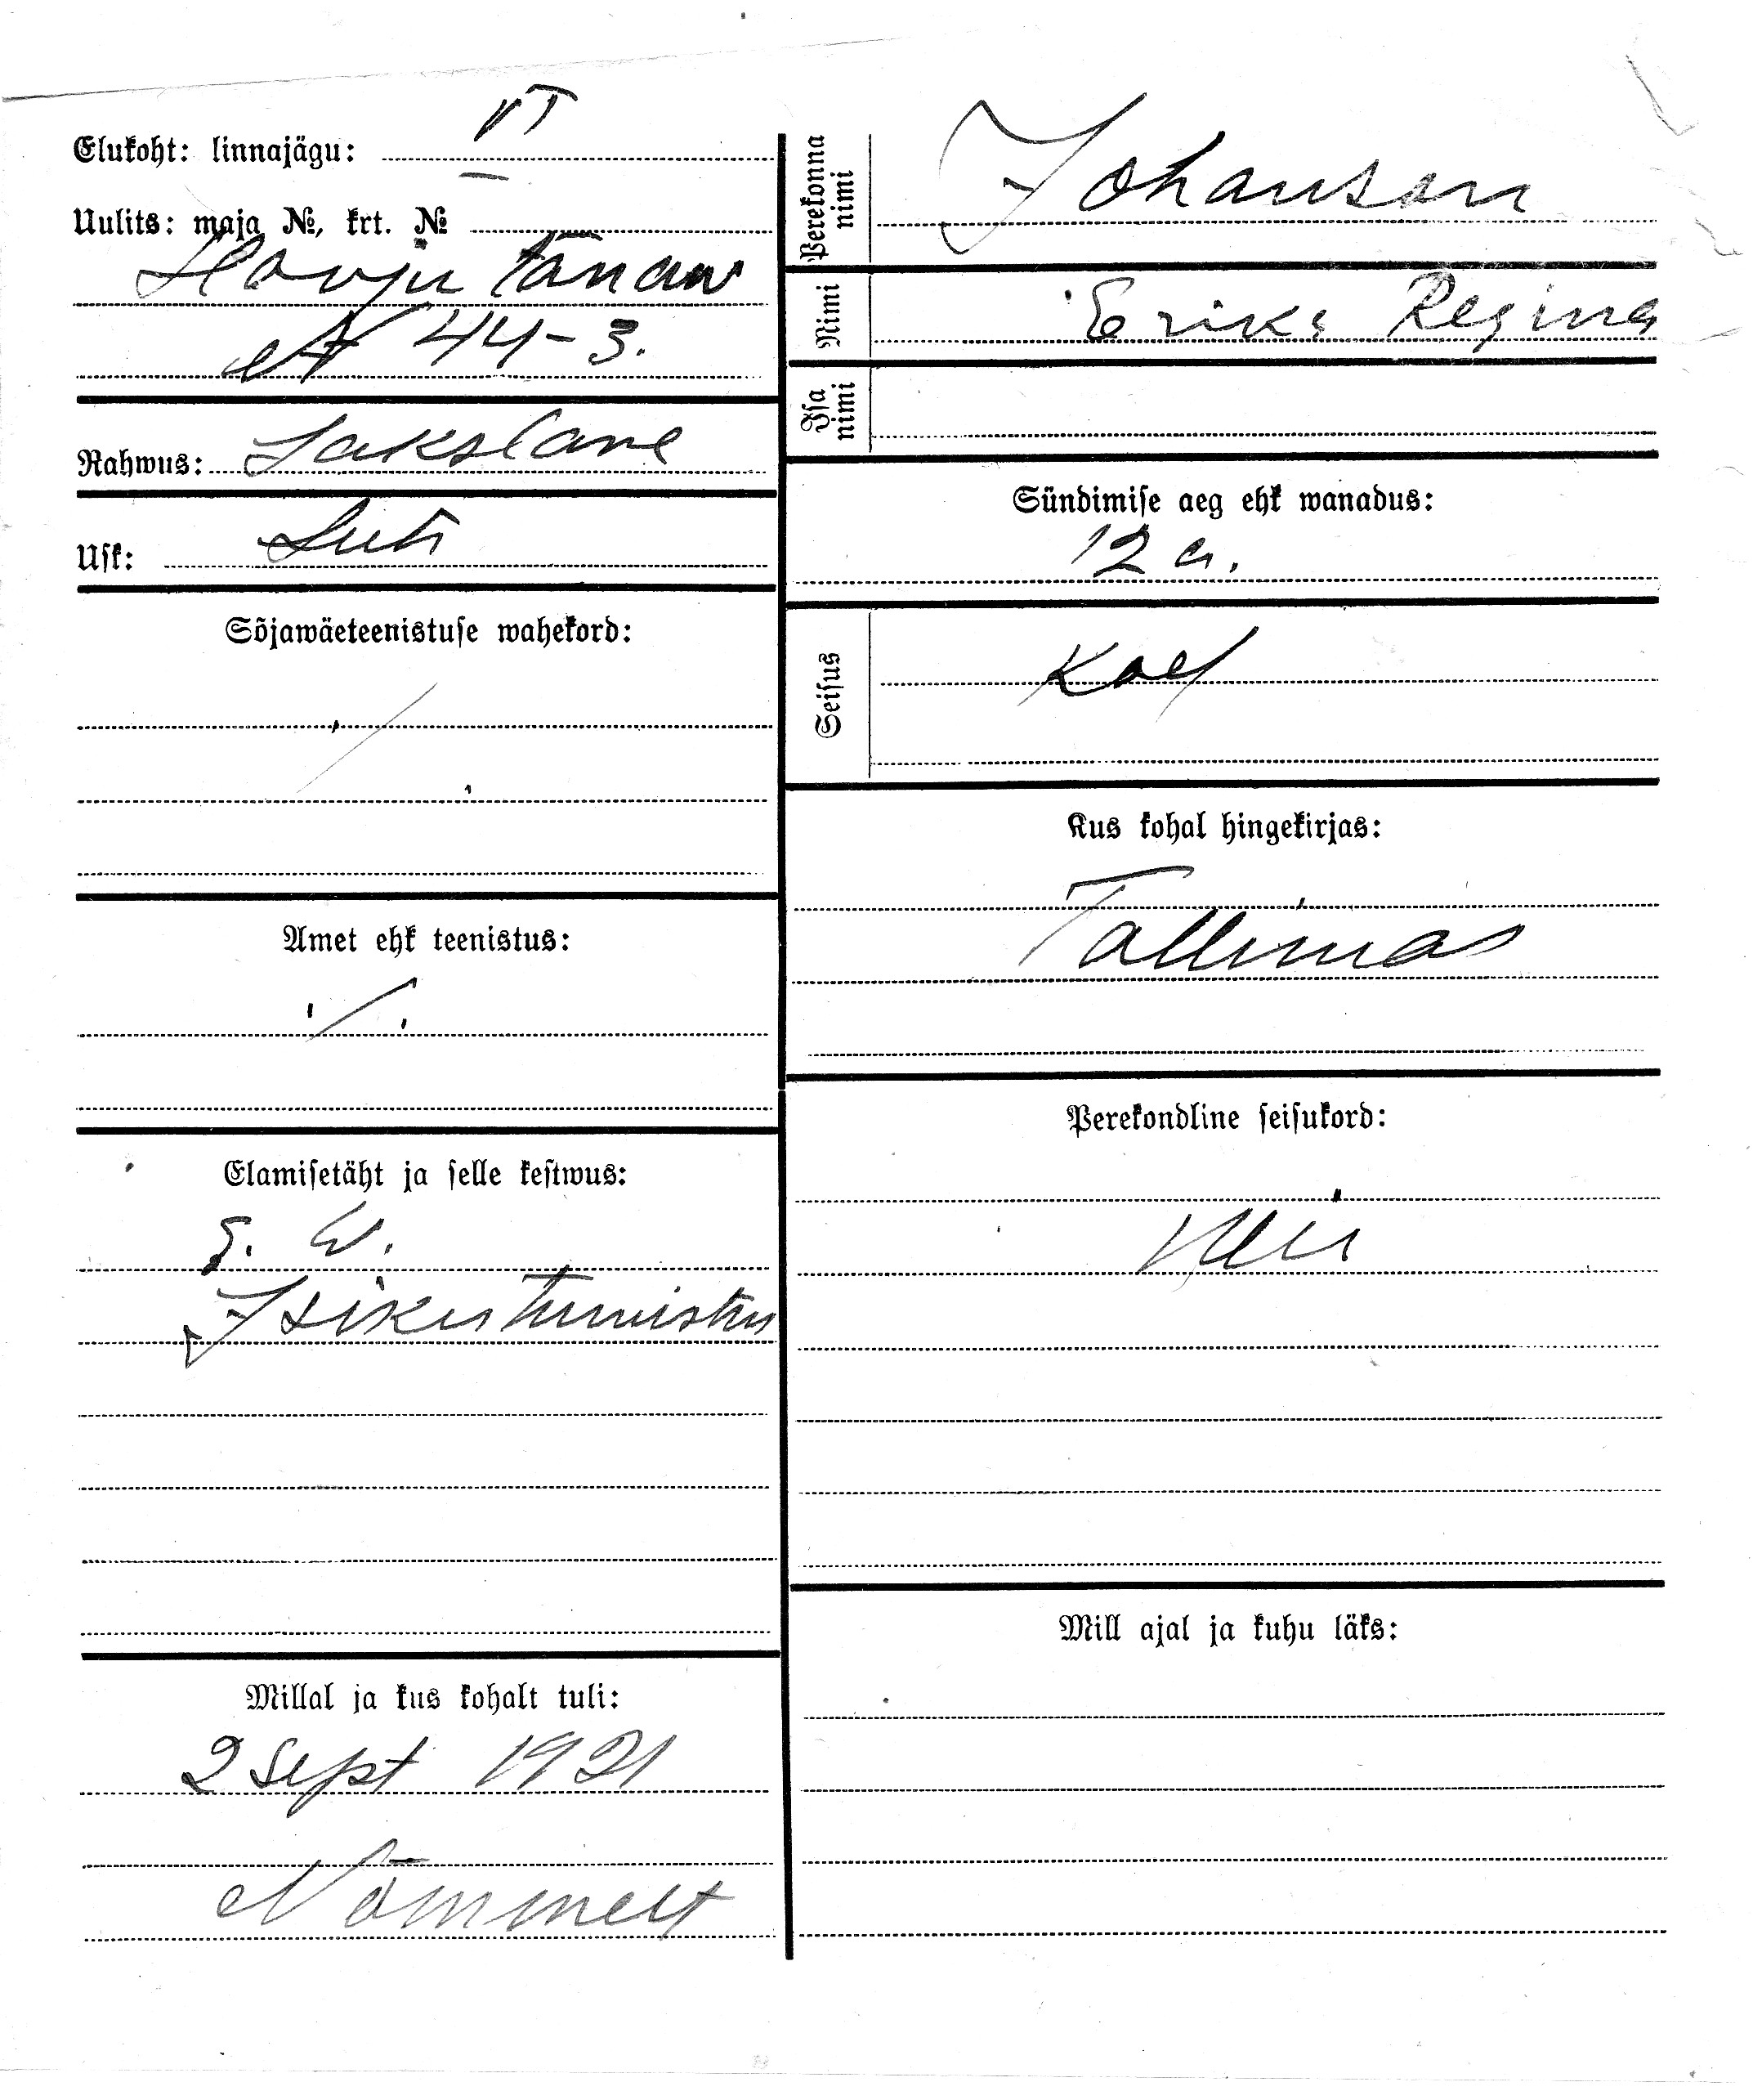 Elukoht: linnajägu: VI
Uulits: maja №, krt. №
Harju tänaw
№ 44-3.
Rahwus: Sakslane
Usk: Luth
Sõjawäeteenistuse wahekord:
Amet ehk teenistus:
Elamisetäht ja selle kestwus:
E. W.
Isikutunnistus
Millal ja kus kohalt tuli:
2 Sept 1921
Nõmmelt
Perekonna nimi Johanson
Nimi Erika Regina
Isa nimi
Sündimise aeg ehk wanadus:
12 a.
Seisus
Kus kohal hingekirjas:
Tallinnas
Perekondline seisukord:
Mill ajal ja kuhu läks: